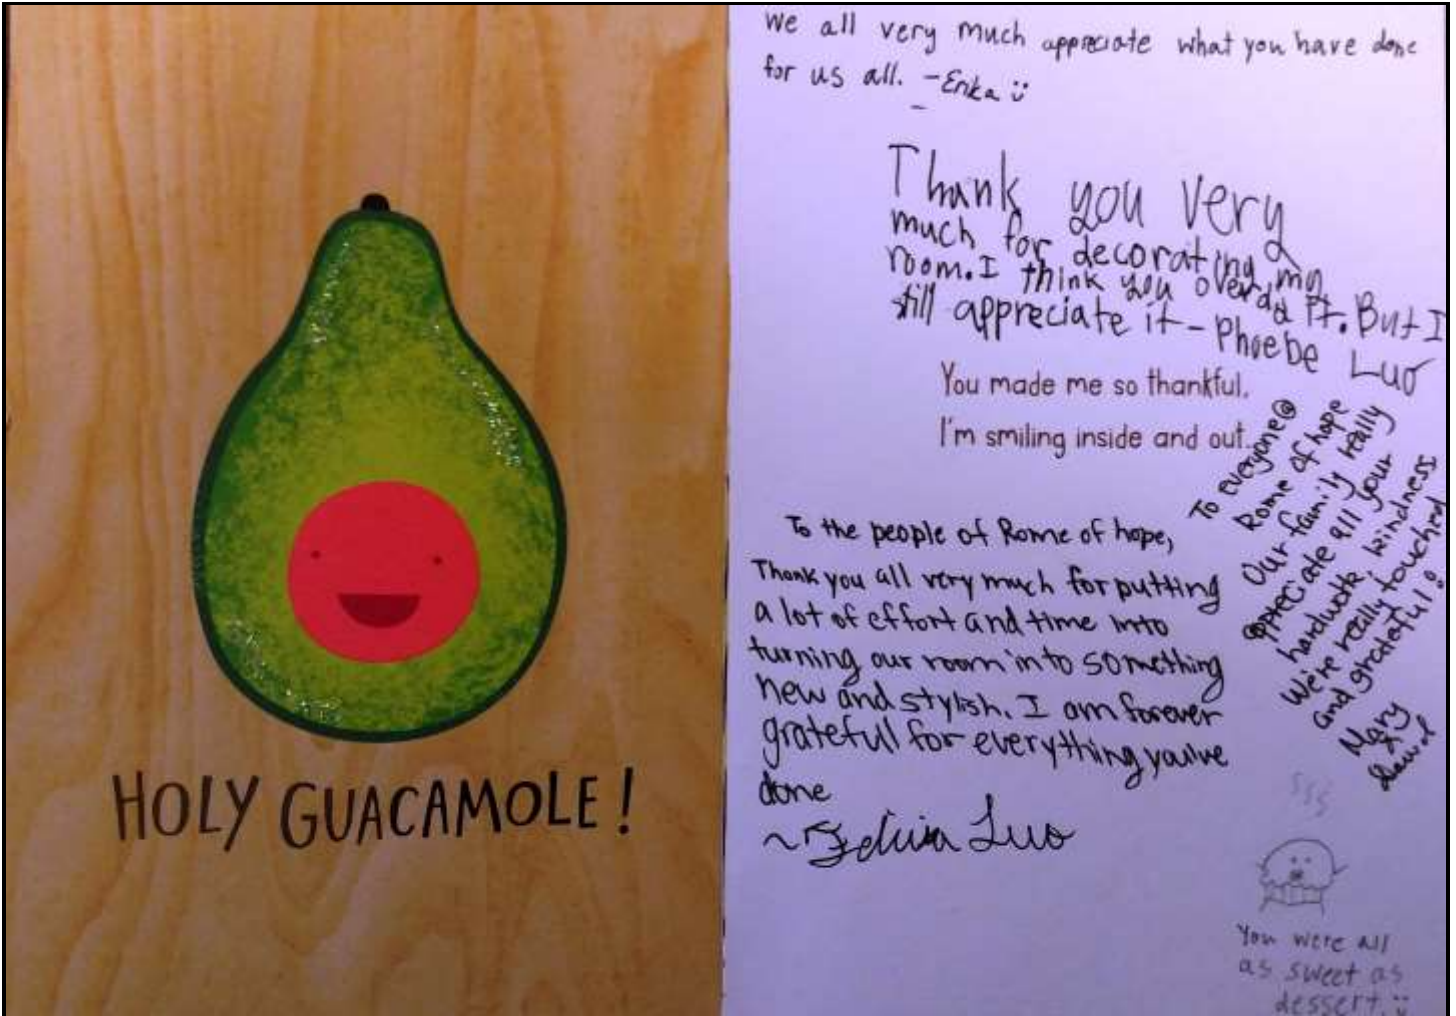 HOLY GUACAMOLE!
We all very much appreciate what you have done
for us all. -Erika
Thank you very
much for decorating my
room. I think you overdd it. But I
still appreciate it - Phoebe Luo
You made me so thankful.
I'm smiling inside and out.
To everyone @
Rome of hope
Our family really
appreciate all your
hardwork, kindness
We're really touched
and grateful!
Mary
&
David
To the people of Rome of hope,
Thank you all very much for putting
a lot of effort and time into
turning our room into something
new and stylish. I am forever
grateful for everything you've
done
~ Luo
You were all
as sweet as
dessert.